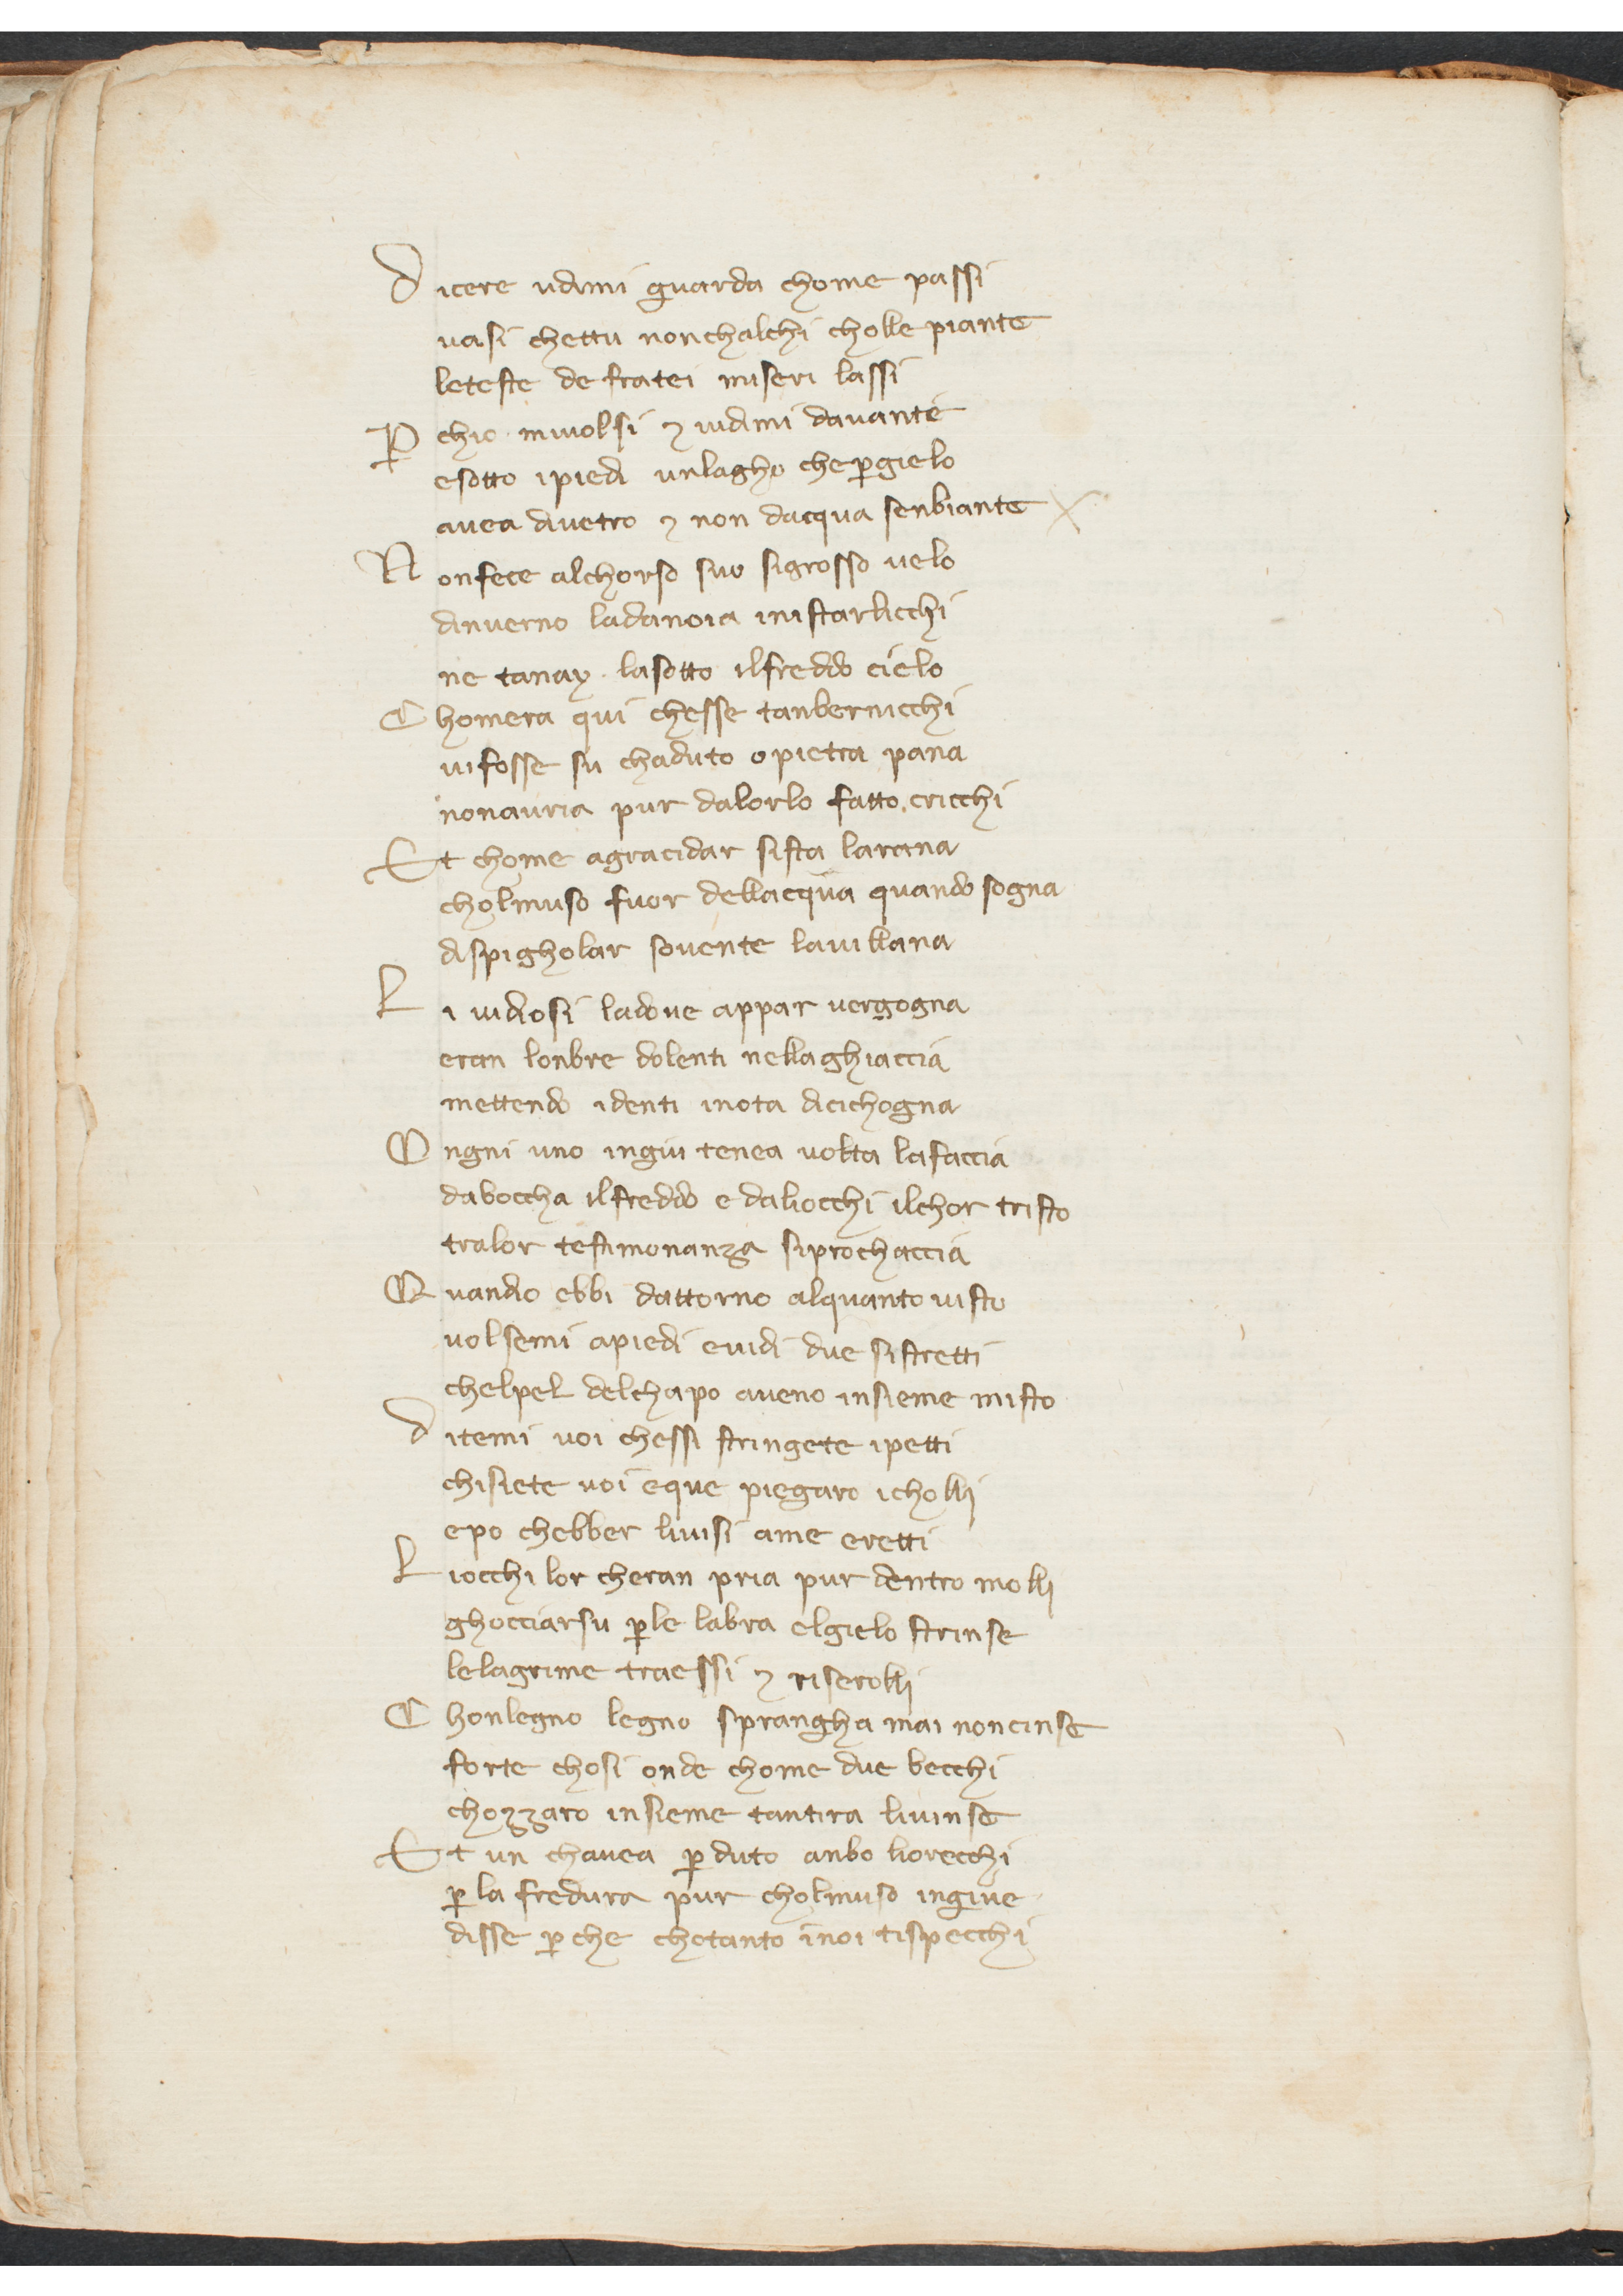 Dicere udimi guarda chome passi
uasi chettu nonchalchi cholle piante
leteste de fratei miseri lassi
P̱ chio miuolsi ⁊ uidimi dauante
esotto ipiedi unlagho che ꝑgielo
auea diuetro ⁊ non dacqua senbiante ×
Nonfece alchorso suo sigrosso uelo
dinuerno ladanoia inistarlicchi
ne tanay · lasotto ilfreddo cielo
Chomera qui chesse tanbernicchi
uifosse su chaduto o pietra pana
nonauria pur dalorlo fatto cricchi
Et chome agracidar sista larana
cholmuso fuor dellacqua quando sogna
dispigholar souente lauillana
Li uidiosi ladoue appar uergogna
eran lonbre dolenti nellaghiaccia
mettendo identi inota dicichogna
Ongni uno ingiu tenea uolta lafaccia
daboccha ilfreddo e daliocchi ilchor tristo
tralor testimonanza siprochaccia
Quandio ebbi dattorno alquanto uisto
uolsemi apiedi euidi due sistretti
chelpel delchapo aueno insieme misto
Ditemi uoi chessi stringete ipetti
chisiete uoi eque piegaro icholli
epo chebber liuisi ame eretti
Liocchi lor cheran pria pur dentro molli
ghocciarsu ꝑle labra elgielo strinse
lelagrime traessi ⁊ riserolli
Chonlegno legno sprangha mai noncinse
forte chosi onde chome due becchi
chozzaro insieme tantira liuinse
Et un chauea ꝑduto anbo liorecchi
ꝑ la fredura pur cholmuso ingiue
disse ꝑche chotanto inoi tispecchi